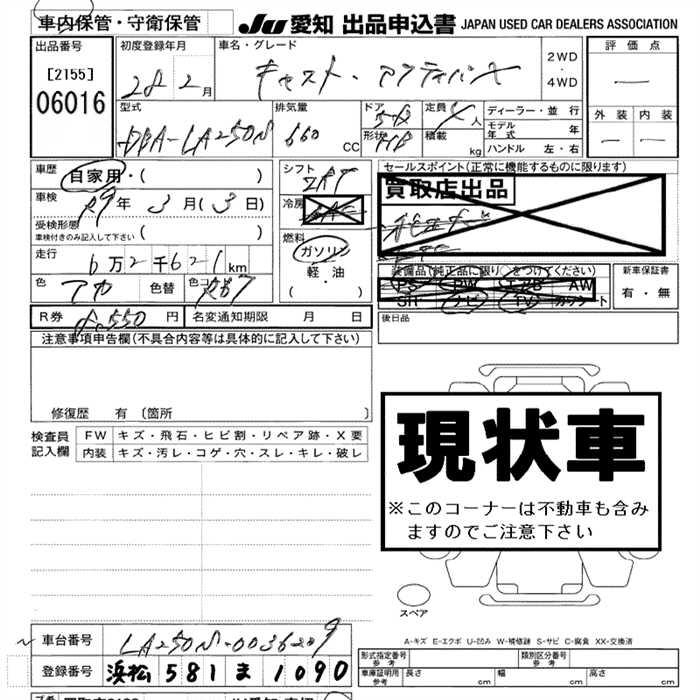 車内保管・守衛保管 JU 愛知 出品申込書 JAPAN USED CAR DEALERS ASSOCIATION
出品番号 初度登録年月 車名・グレード 2WD・4WD 評価点
[2155] 06016 28年2月 キャスト・アクティバX ー
型式 排気量 ドア形状 定員 積載 ディーラー・並行 外装 内装
DBA-LA250S 660cc 5D HB 4人 kg モデル年式 年 ー ー
ハンドル 左・右
車歴 自家用・( ) シフト セールスポイント(正常に機能するものに限ります)
車検 R9年3月(3日) 冷房 買取店出品
受検形態 ( )
車検付きのみ記入して下さい
燃料 ガソリン 軽油 ・( )
走行 6万2千621km
装備品(純正品に限り○をつけてください) 新車保証書
色 アカ 色替 色コ R67 PS PW エアB AW 有・無
SR ナビ TV カワシート
R券 8,550円 名変通知期限 月 日 後日品
注意事項申告欄(不具合内容等は具体的に記入して下さい)
修復歴 有〔箇所 〕
現状車
※このコーナーは不動車も含み
ますのでご注意下さい
検査員記入欄 FW キズ・飛石・ヒビ割・リペア跡・X要
内装 キズ・汚レ・コゲ・穴・スレ・キレ・破レ
スペア
A-キズ E-エクボ U-凹み W-補修跡 S-サビ C-腐食 XX-交換済
車台番号 LA250S-0036209
登録番号 浜松 581 ま 1090
形式指定番号 参考 類別区分番号 参考
車庫証明用 参考 長さ cm 幅 cm 高さ cm